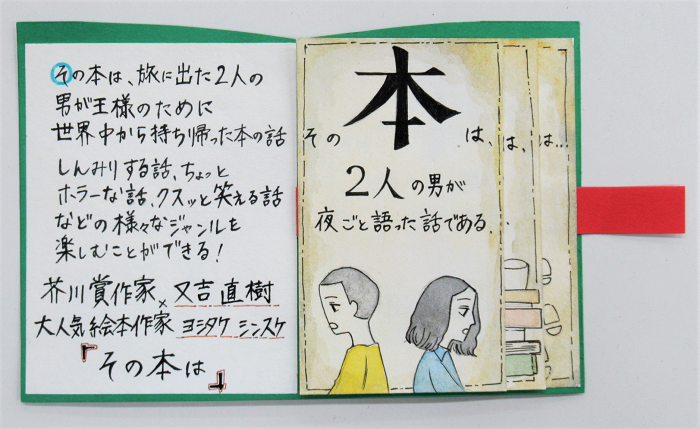 その本は、旅に出た2人の
男が王様のために
世界中から持ち帰った本の話
しんみりする話、ちょっと
ホラーな話、クスッと笑える話
などの様々なジャンルを
楽しむことができる!
芥川賞作家×又吉直樹
大人気絵本作家 ヨシタケシンスケ
『その本は』
その本は、は、は…
2人の男が
夜ごと語った話である。